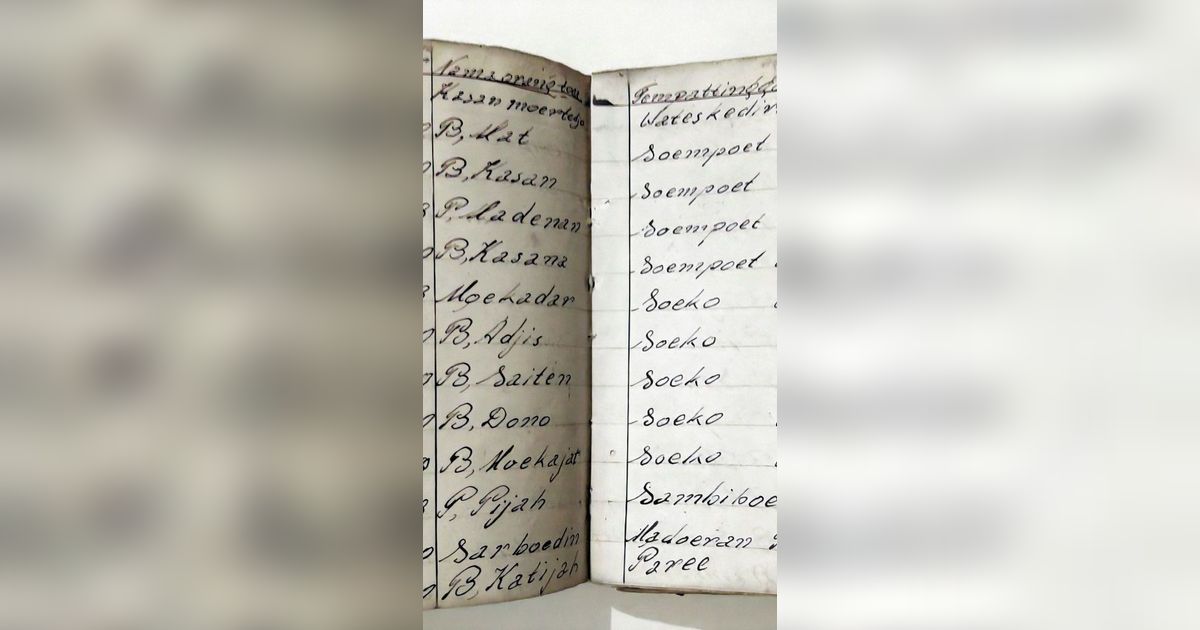 Nama orang toea
Kasan moertedjo
B, Mat
B, Kasan
P, Madenan
B, Kasana
Moekadar
B, Adjis
B, Saiten
B, Dono
B, Moekajat
P, Pijah
Sarboedin
B, Katijah
Tempat tingga
Wateskedir
Soempoet
Soempoet
Soempoet
Soempoet
Soeko
Soeko
Soeko
Soeko
Soeko
Sambiboe
Madoeran
Paree